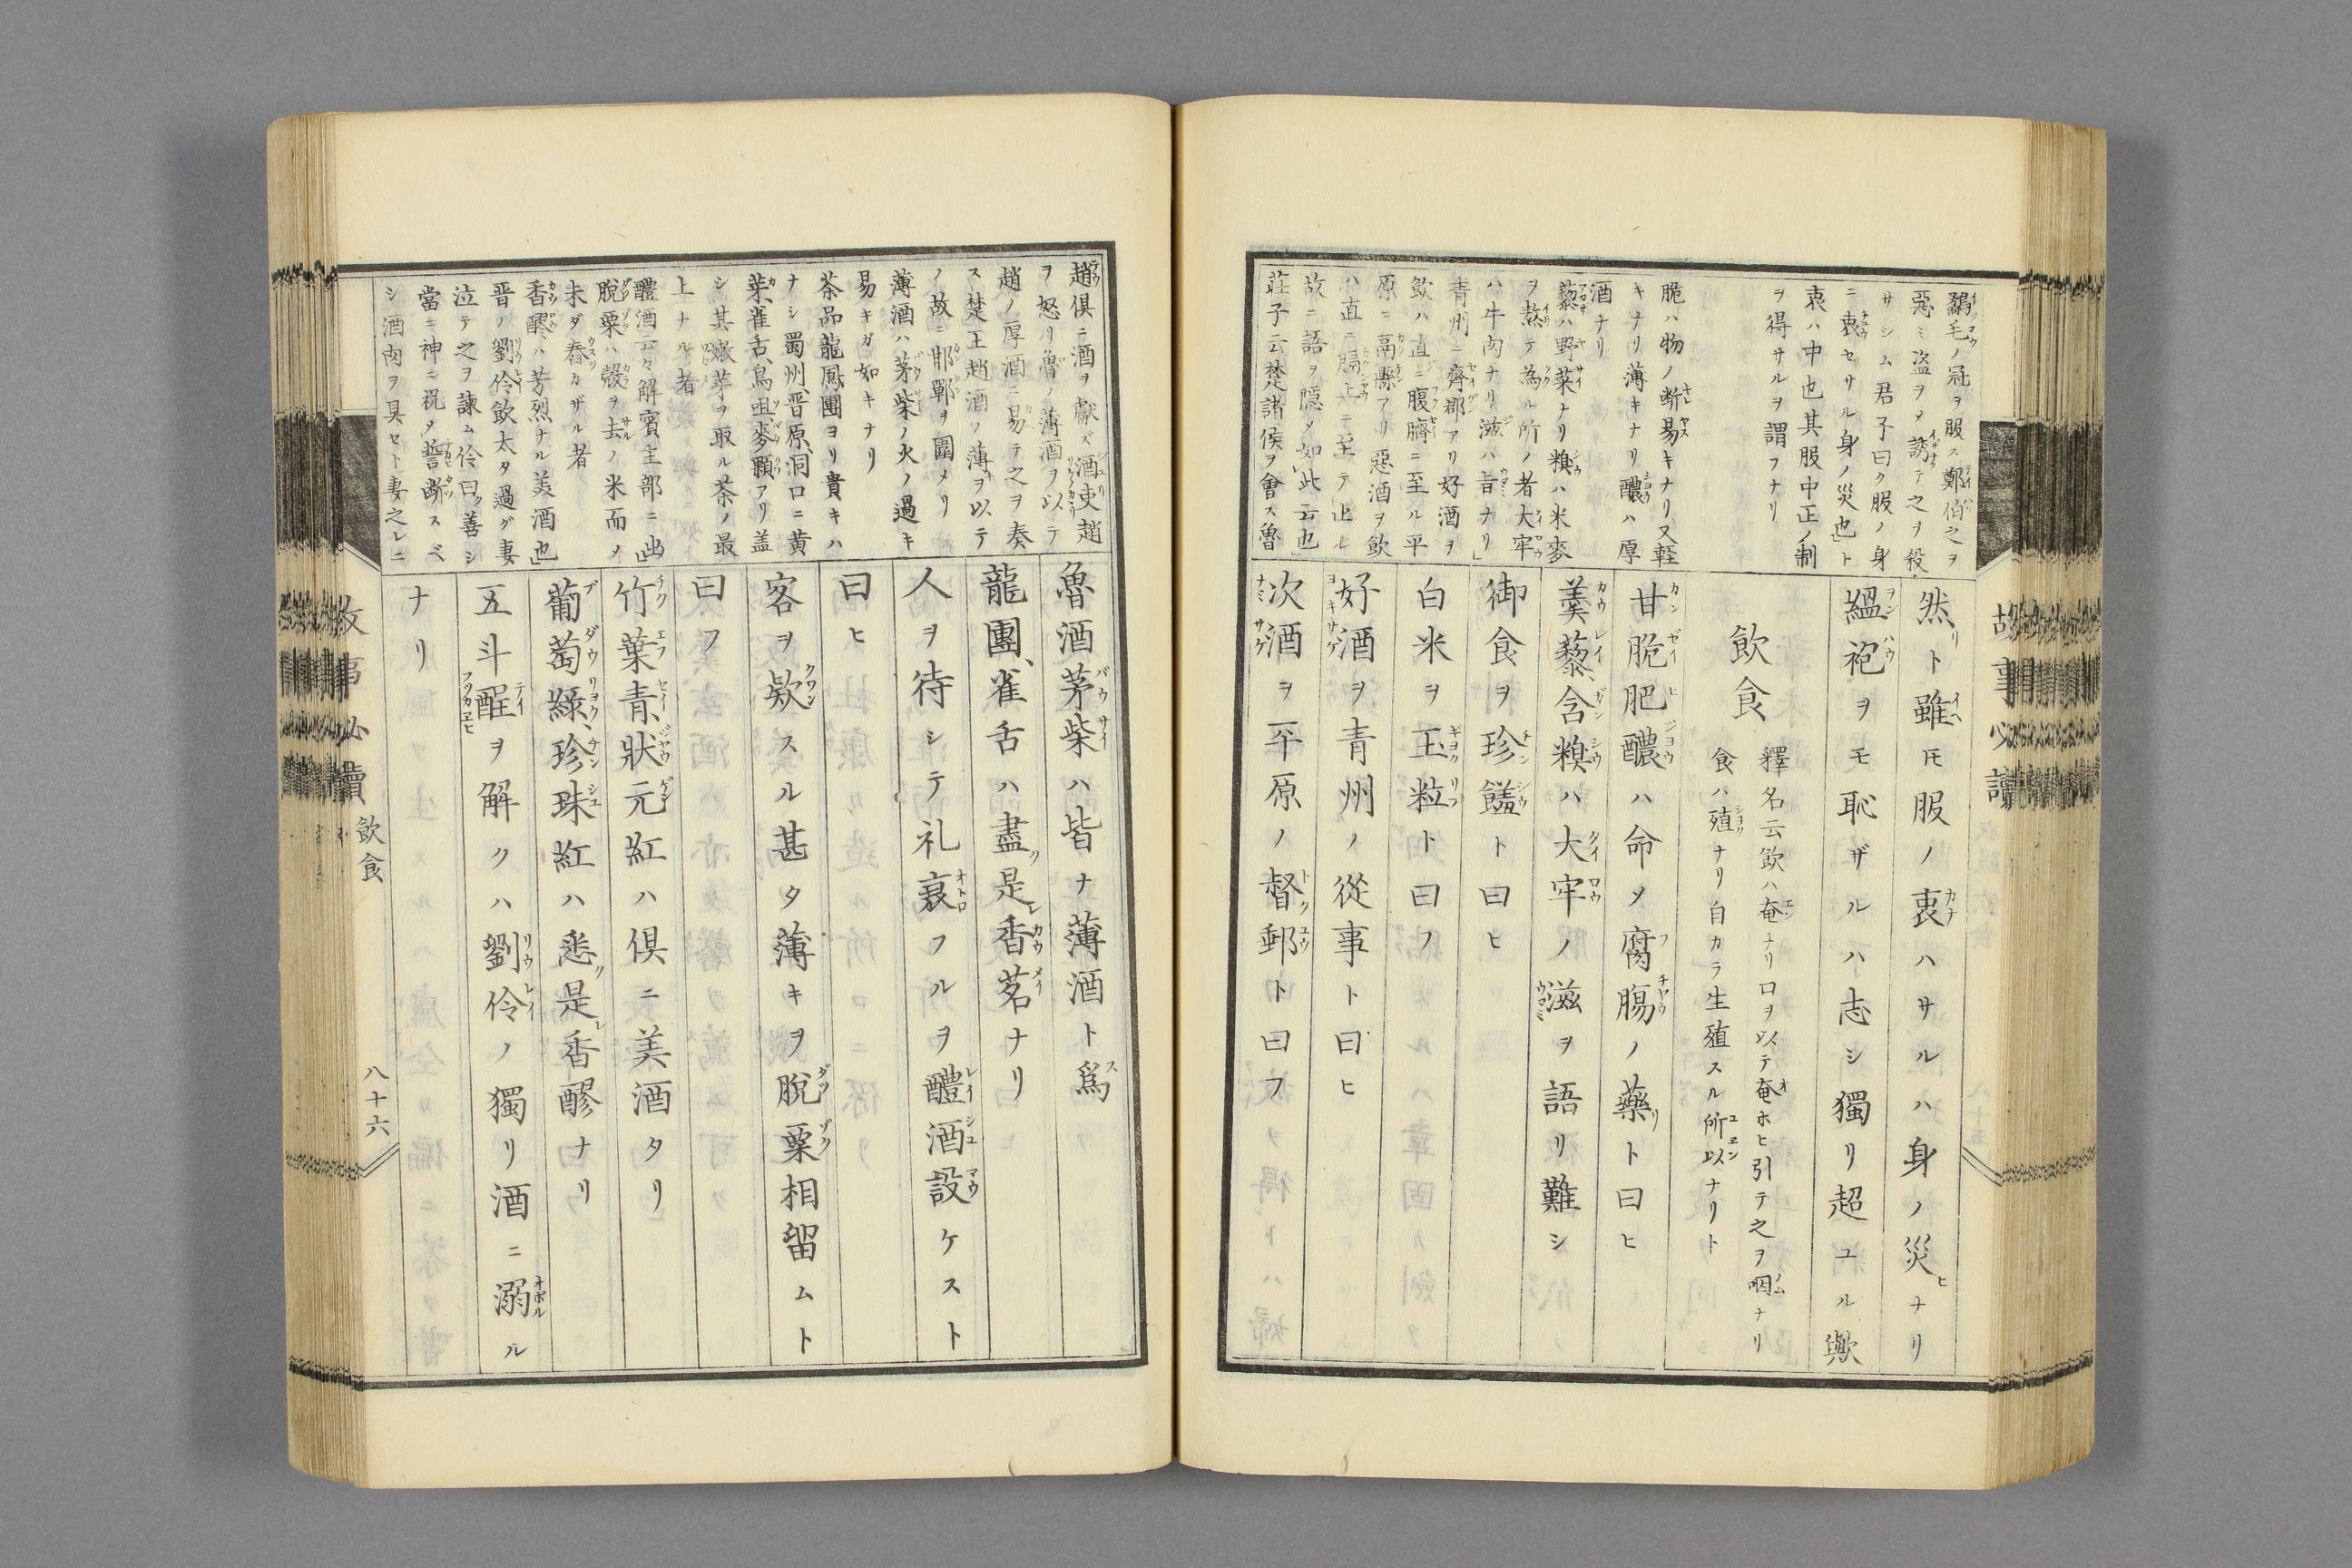 鷸毛ノ冠ヲ服ス鄭伯之ヲ
惡ミ盗ヲメ誘テ之ヲ殺
サシム君子曰ク服ノ身
ニ衷セサル身ノ災也ト
衷ハ中也其服中正ノ制
ヲ得サルヲ謂フナリ
脆ハ物ノ断易キナリ又軽
キナリ薄キナリ醲ハ厚
酒ナリ
藜ハ野菜ナリ糗ハ米麥
ヲ熬テ為ル所ノ者大牢
ハ牛肉ナリ滋ハ旨ナリ
青州ニ齊郡アリ好酒ヲ
飲ハ直ニ腹臍ニ至ル平
原ニ鬲縣アリ惡酒ヲ飲
ハ直ニ膈上ニ至テ止ル
故ニ語ヲ隠メ如此云也
莊子云楚諸侯ヲ會ス魯
然リト雖モ服ノ衷ハサルハ身ノ災ヒナリ
縕袍ヲモ恥ザルハ志シ獨リ超ユル歟
飲食
釋名云飲ハ奄ナリ口ヲ以テ奄ホヒ引テ之ヲ咽ナリ
食ハ殖ナリ自カラ生殖スル所以ナリト
甘脆肥醲ハ命メ腐膓ノ藥リト曰ヒ
羹藜、含糗ハ大牢ノ滋ヲ語リ難シ
御食ヲ珍饈ト曰ヒ
白米ヲ玉粒ト曰フ
好酒ヲ青州ノ從事ト曰ヒ
次酒ヲ平原ノ督郵ト曰フ
故事必讀
趙倶ニ酒ヲ獻ズ酒吏趙
ヲ怒リ魯ノ薄酒ヲ以テ
趙ノ厚酒ニ易テ之ヲ奏
ス楚王趙酒ノ薄ヲ以テ
ノ故ニ邯鄲ヲ圍メリ
薄酒ハ茅柴ノ火ノ過キ
易キガ如キナリ
茶品龍鳳團ヨリ貴キハ
ナシ蜀州、晋原、洞口ニ黄
葉、雀舌、鳥咀、麥顆アリ盖
シ其嫩芽ヲ取ル茶ノ最
上ナル者
醴酒云々解賓主部ニ出
脫粟ハ殻ヲ去ノ米而メ
未ダ舂カザル者
香醪ハ芳烈ナル美酒也
晋ノ劉伶飲太タ過グ妻
泣テ之ヲ諌ム伶曰ク善シ
當ニ神ニ祝メ誓断スベ
シ酒肉ヲ具セト妻之レニ
魯酒茅柴ハ皆ナ薄酒ト爲
龍團、雀舌ハ盡ク是レ香茗ナリ
人ヲ待シテ礼衰フルヲ醴酒設ケスト
曰ヒ
客ヲ欵スル甚タ薄キヲ脫粟相留ムト
曰フ
竹葉青、狀元紅ハ倶ニ美酒タリ
葡萄綠、珍珠紅ハ悉ク是レ香醪ナリ
五斗酲ヲ解クハ劉伶ノ獨リ酒ニ溺ル
ナリ
故事必讀
飲食
八十六